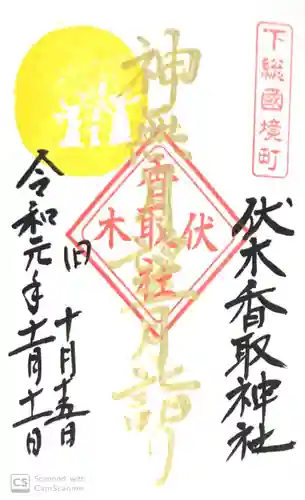 下総國境町
伏木香取神社
神無月十一月詣り
伏木
香取社
令和元年十一月十一日
旧 十月十五日
CS Scanned with
CamScanner